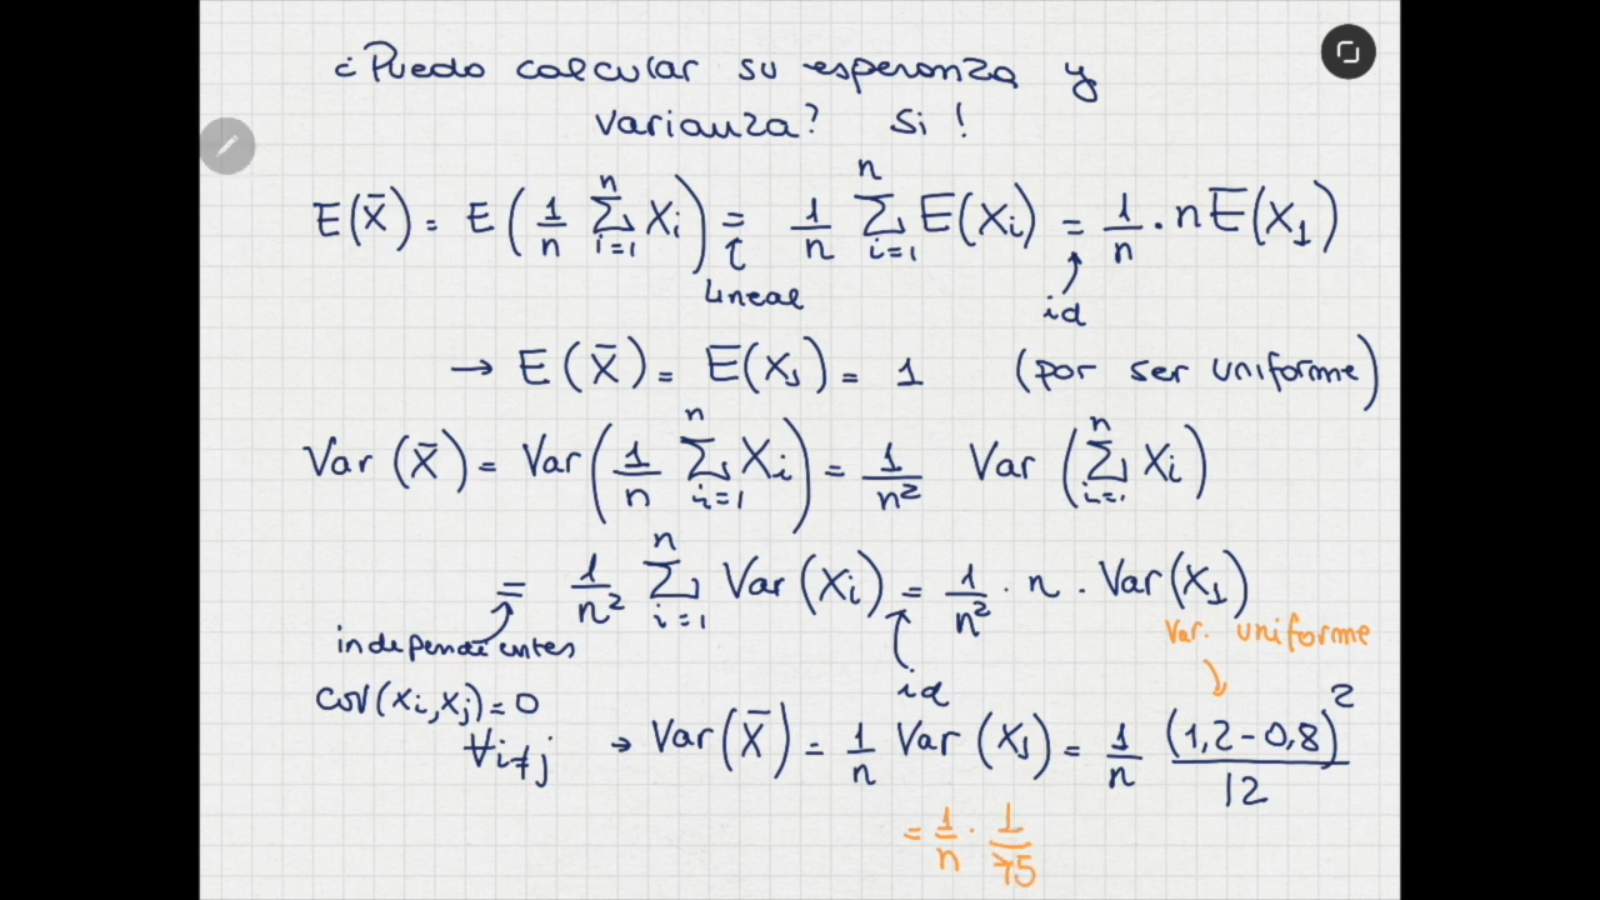 ¿Puedo calcular su esperanza y
varianza? Si!
E(X̄) = E(1/n ∑_{i=1}^{n} Xi) = 1/n ∑_{i=1}^{n} E(Xi) = 1/n · n E(X1)
Lineal
id
→ E(X̄) = E(X1) = 1 (por ser uniforme)
Var(X̄) = Var(1/n ∑_{i=1}^{n} Xi) = 1/n² Var(∑_{i=1}^{n} Xi)
= 1/n² ∑_{i=1}^{n} Var(Xi) = 1/n² · n · Var(X1)
Var. uniforme
independientes
id
cov(xi,xj)=0
∀i≠j
→ Var(X̄) = 1/n Var(X1) = 1/n (1,2-0,8)²/12
= 1/n · 1/75